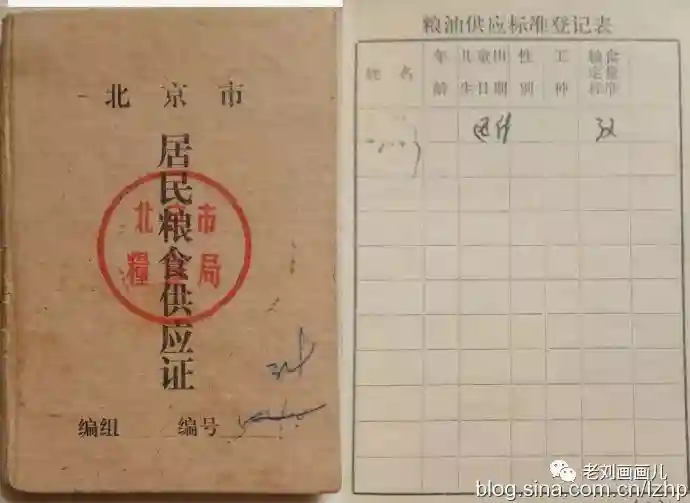 北京市
居民粮食供应证
北京市
糧食局
编组 编号
粮油供应标准登记表
姓名 年龄 儿童出生日期 性别 工种 粮食定量标准
老刘画画儿
blog.sina.com.cn/lzhp